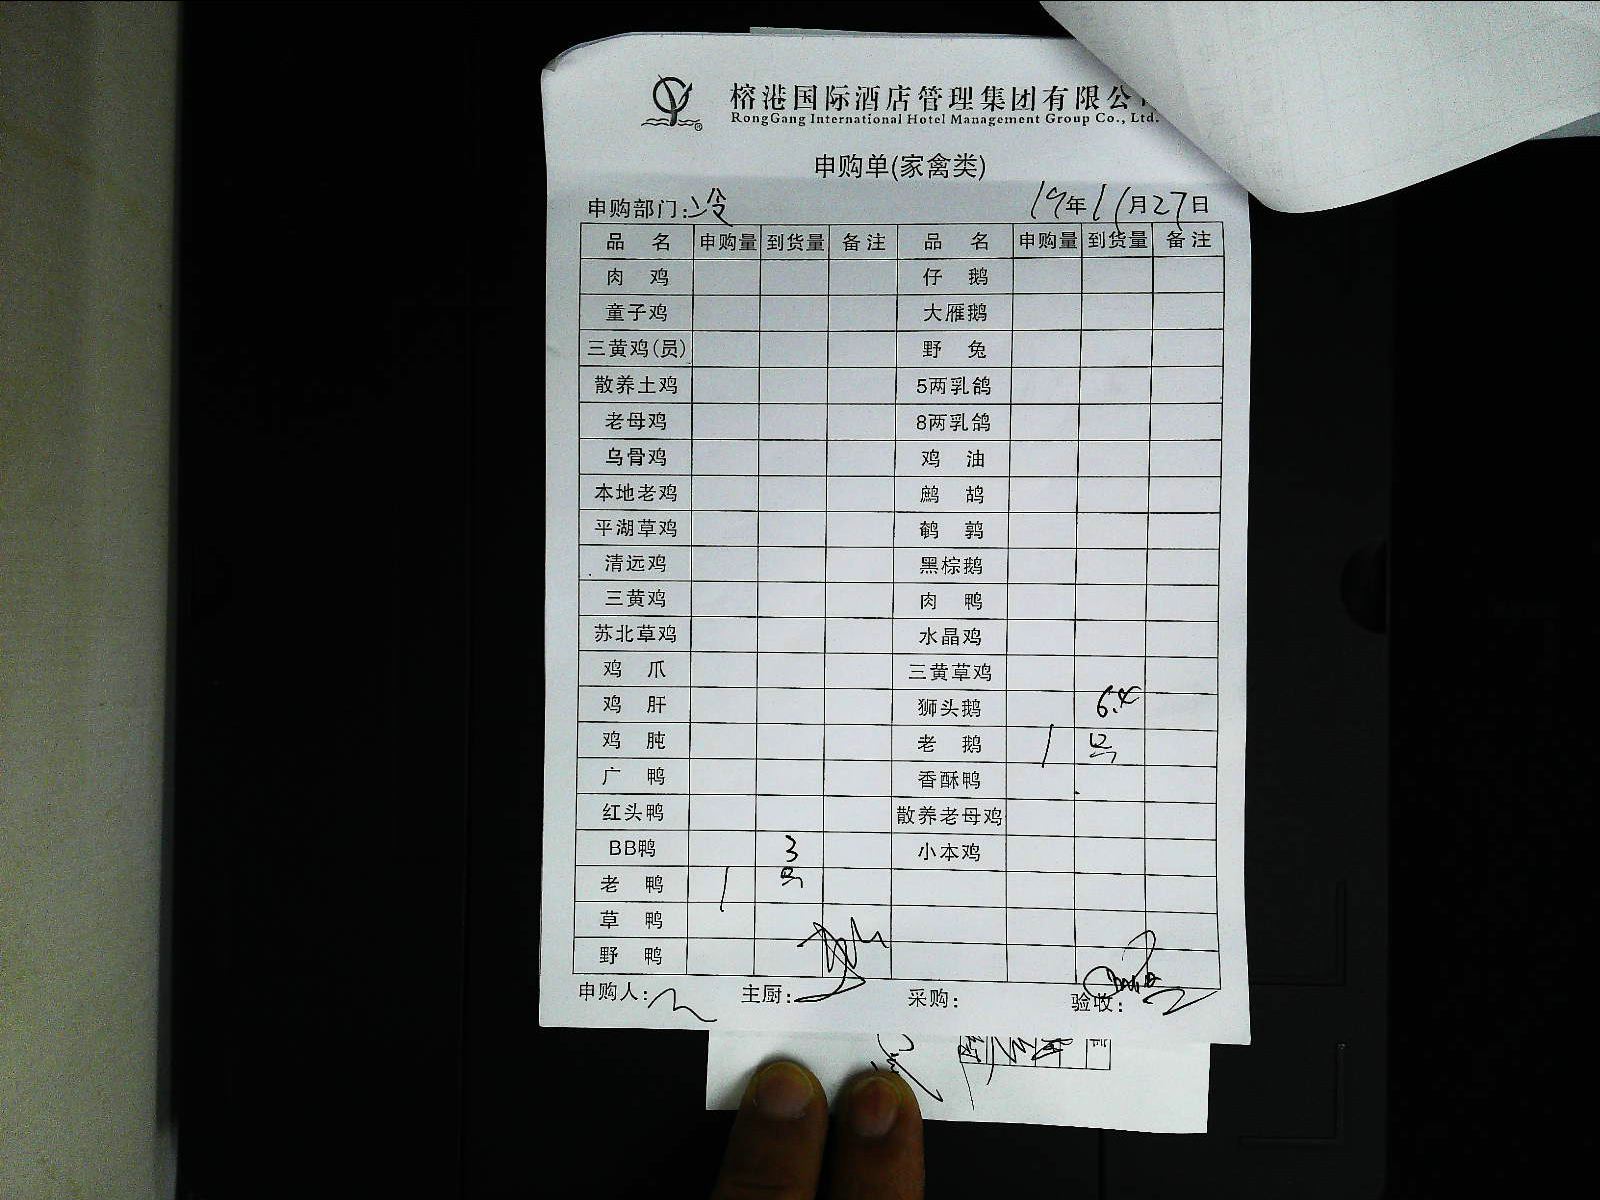 榕港国际酒店管理集团有限公
RongGang International Hotel Management Group Co., Ltd.
申购单(家禽类)
申购部门:冷 19年11月27日
品 名 申购量 到货量 备注 品 名 申购量 到货量 备注
肉 鸡 仔 鹅
童子鸡 大雁鹅
三黄鸡(员) 野 兔
散养土鸡 5两乳鸽
老母鸡 8两乳鸽
乌骨鸡 鸡 油
本地老鸡 鹧 鸪
平湖草鸡 鹌 鹑
清远鸡 黑棕鹅
三黄鸡 肉 鸭
苏北草鸡 水晶鸡
鸡 爪 三黄草鸡
鸡 肝 狮头鹅 6.4
鸡 肫 老 鹅 1 号
广 鸭 香酥鸭
红头鸭 散养老母鸡
BB鸭 3 小本鸡
老 鸭 1 号
草 鸭
野 鸭
申购人: 主厨: 采购: 验收: